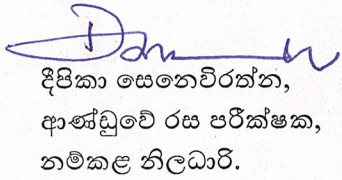 දීපිකා සෙනෙවිරත්න,
ආණ්ඩුවේ රස පරීක්ෂක,
නම්කළ නිලධාරි.